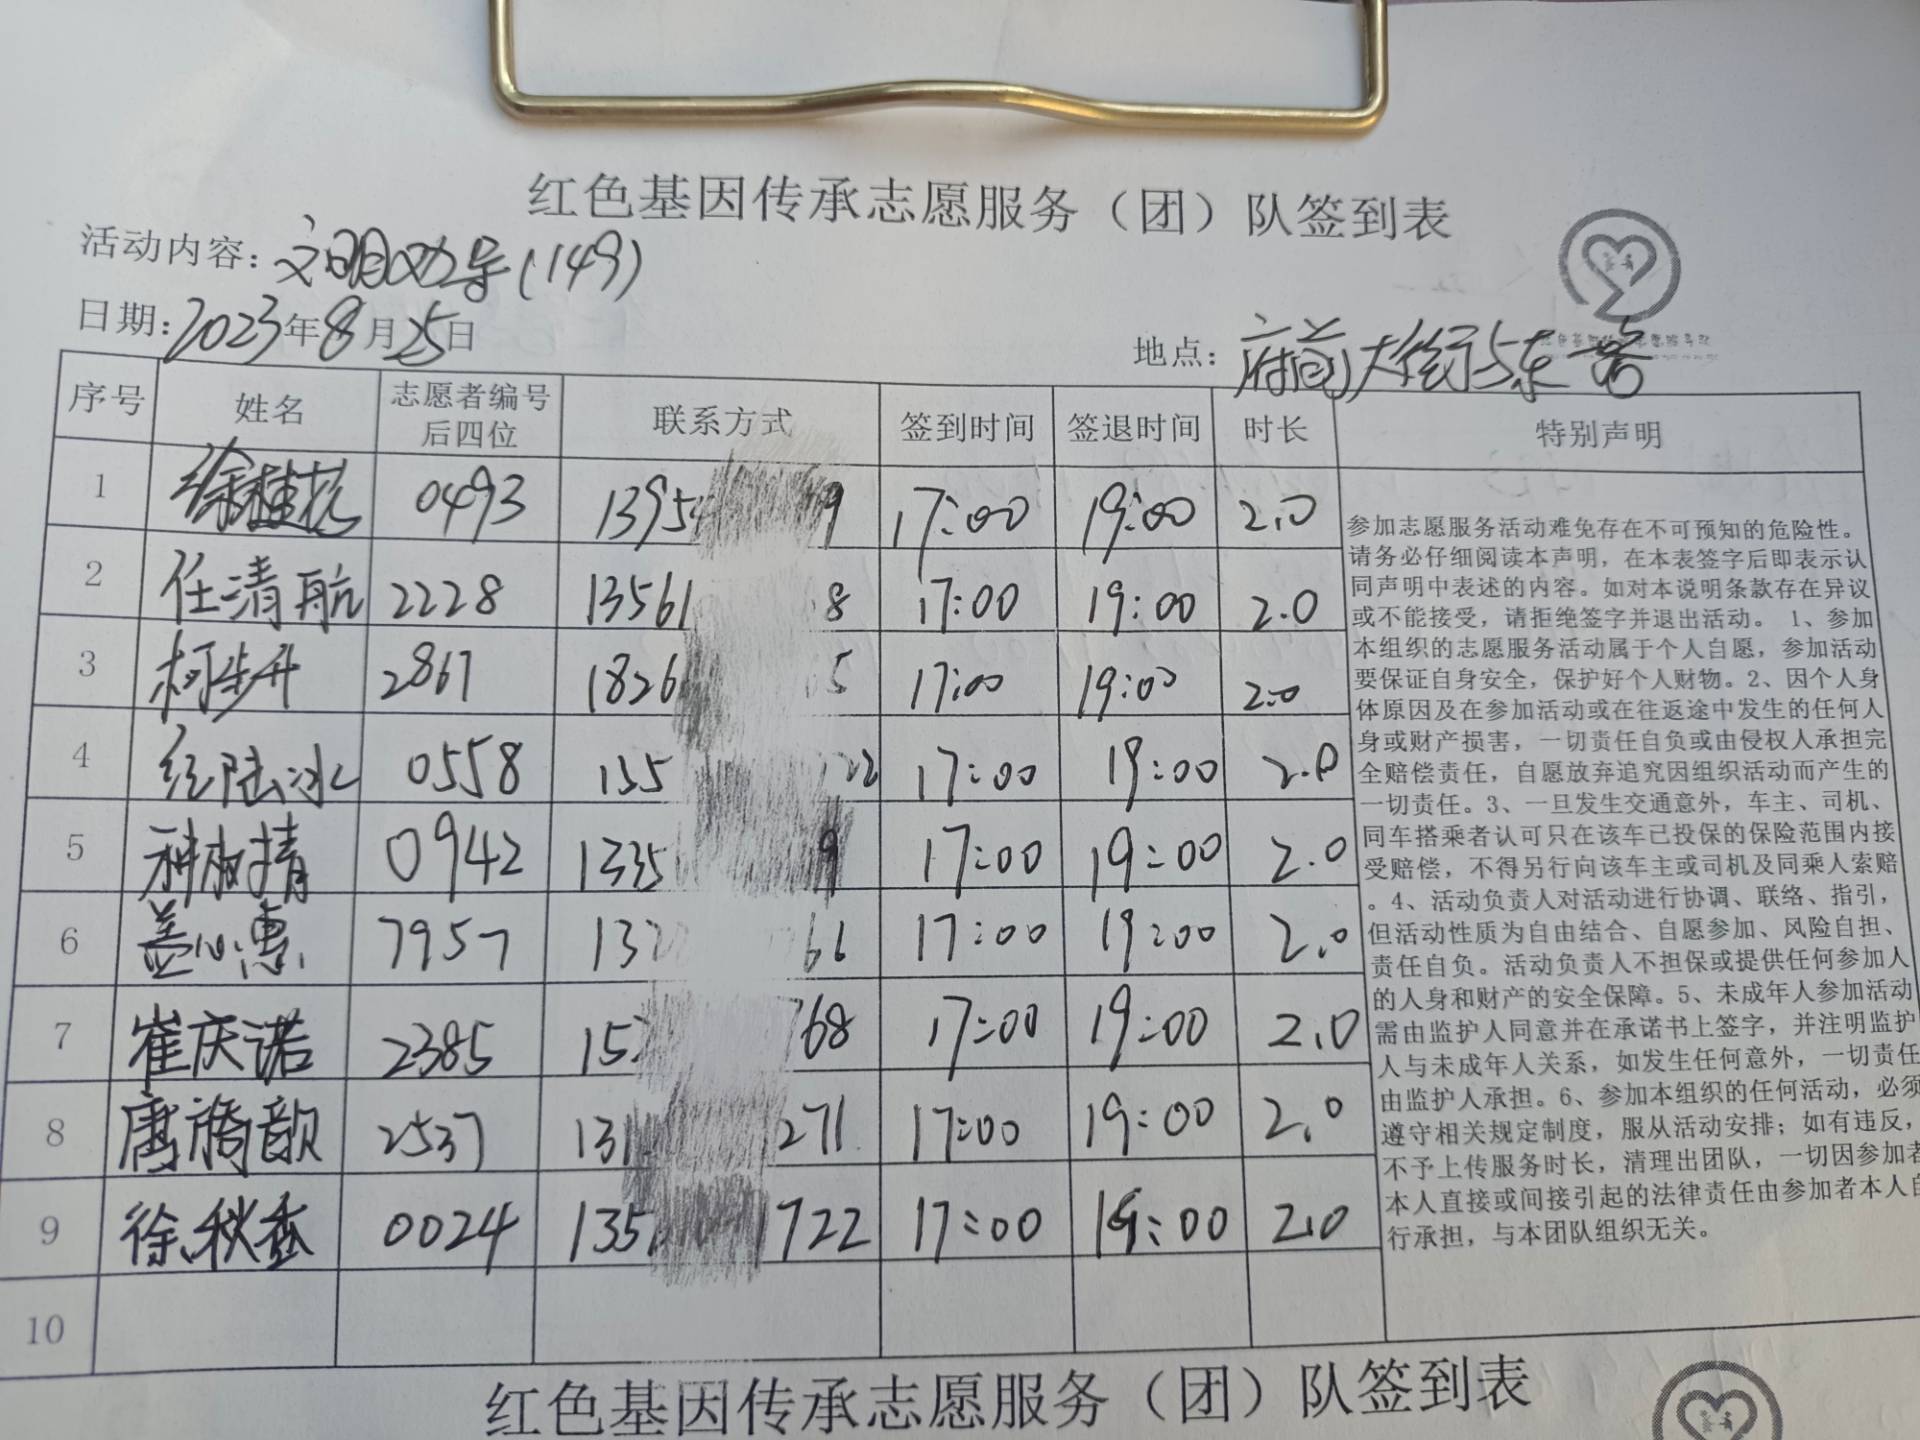 红色基因传承志愿服务（团）队签到表
活动内容：文明劝导(149)
日期：2023年8月25日
地点：府前大街与东
序号 姓名 志愿者编号后四位 联系方式 签到时间 签退时间 时长 特别声明
1 徐桂花 0493 1395 9 17:00 19:00 2.0
2 任清航 2228 13561 8 17:00 19:00 2.0
3 柯步升 2867 1826 5 17:00 19:00 2.0
4 陆冰 0558 155 22 17:00 19:00 2.0
5 0942 1335 9 17:00 19:00 2.0
6 盖心惠 7957 132 61 17:00 19:00 2.0
7 崔庆诺 2385 15 768 17:00 19:00 2.0
8 唐旖歆 2537 131 271 17:00 19:00 2.0
9 徐秋香 0024 135 1722 17:00 19:00 2.0
10
参加志愿服务活动难免存在不可预知的危险性。
请务必仔细阅读本声明，在本表签字后即表示认
同声明中表述的内容。如对本说明条款存在异议
或不能接受，请拒绝签字并退出活动。 1、参加
本组织的志愿服务活动属于个人自愿，参加活动
要保证自身安全，保护好个人财物。2、因个人身
体原因及在参加活动或在往返途中发生的任何人
身或财产损害，一切责任自负或由侵权人承担完
全赔偿责任，自愿放弃追究因组织活动而产生的
一切责任。3、一旦发生交通意外，车主、司机、
同车搭乘者认可只在该车已投保的保险范围内接
受赔偿，不得另行向该车主或司机及同乘人索赔
。4、活动负责人对活动进行协调、联络、指引，
但活动性质为自由结合、自愿参加、风险自担、
责任自负。活动负责人不担保或提供任何参加人
的人身和财产的安全保障。5、未成年人参加活动
需由监护人同意并在承诺书上签字，并注明监护
人与未成年人关系，如发生任何意外，一切责任
由监护人承担。6、参加本组织的任何活动，必须
遵守相关规定制度，服从活动安排；如有违反，
不予上传服务时长，清理出团队，一切因参加者
本人直接或间接引起的法律责任由参加者本人自
行承担，与本团队组织无关。
红色基因传承志愿服务（团）队签到表